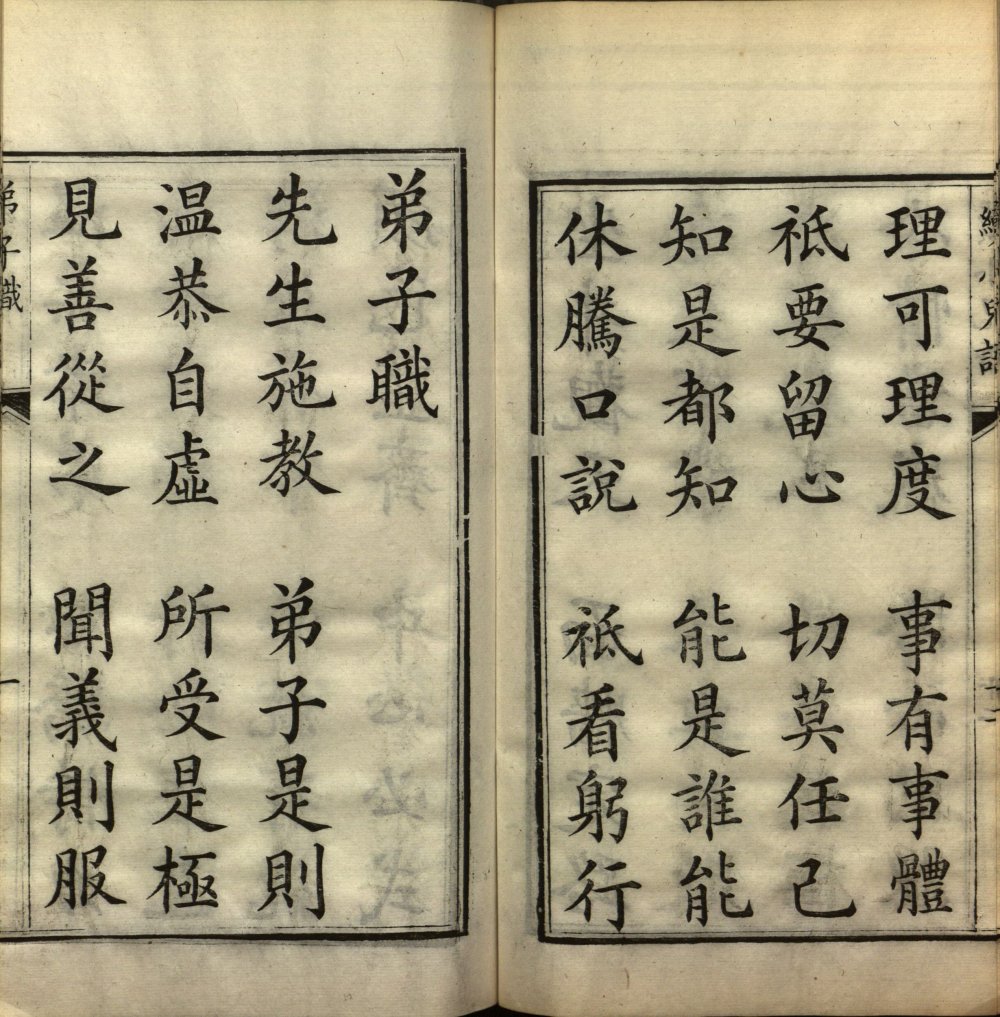 續小兒語
理可理度 事有事體
祇要留心 切莫任己
知是都知 能是誰能
休騰口說 祇看躬行
十二
弟子職
先生施教 弟子是則
溫恭自虛 所受是極
見善從之 聞義則服
弟子職
一